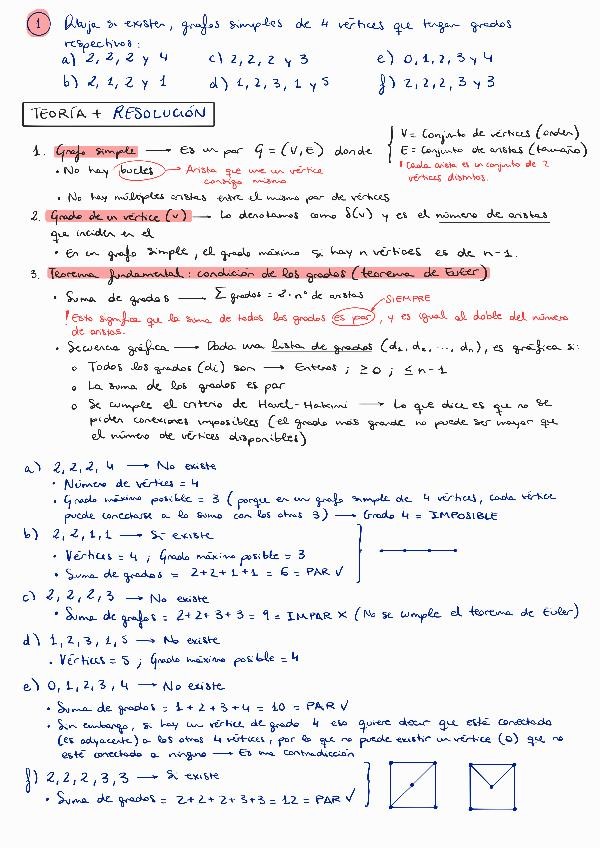 1 Dibuja si existen, grafos simples de 4 vértices que tengan grados
respectivos:
a) 2, 2, 2 y 4 c) 2, 2, 2 y 3 e) 0, 1, 2, 3 y 4
b) 2, 1, 2 y 1 d) 1, 2, 3, 1 y 5 f) 2, 2, 2, 3 y 3
TEORÍA + RESOLUCIÓN
1. Grafo simple → Es un par G = (V, E) donde { V = Conjunto de vértices (orden)
E = Conjunto de aristas (tamaño)
! Cada arista es un conjunto de 2
vértices distintos.
• No hay bucles → Arista que une un vértice
consigo mismo
• No hay múltiples aristas entre el mismo par de vértices
2. Grado de un vértice (v) → Lo denotamos como δ(v) y es el número de aristas
que inciden en el
• En un grafo simple, el grado máximo si hay n vértices es de n-1.
3. Teorema fundamental: condición de los grados (teorema de Euler)
• Suma de grados → Σ grados = 2 · nº de aristas
SIEMPRE
! Esto significa que la suma de todos los grados es par, y es igual al doble del número
de aristas.
• Secuencia gráfica → Dada una lista de grados (d₁, d₂, ..., dₙ), es gráfica si:
○ Todos los grados (di) son → Enteros ; ≥ 0 ; ≤ n-1
○ La suma de los grados es par
○ Se cumple el criterio de Havel-Hakimi → Lo que dice es que no se
piden conexiones imposibles (el grado más grande no puede ser mayor que
el número de vértices disponibles)
a) 2, 2, 2, 4 → No existe
• Número de vértices = 4
• Grado máximo posible = 3 (porque en un grafo simple de 4 vértices, cada vértice
puede conectarse a lo sumo con los otros 3) → Grado 4 = IMPOSIBLE
b) 2, 2, 1, 1 → Si existe
• Vértices = 4 ; Grado máximo posible = 3
• Suma de grados = 2+2+1+1 = 6 = PAR ✓
c) 2, 2, 2, 3 → No existe
• Suma de grafos = 2+2+3+3 = 9 = IMPAR × (No se cumple el teorema de Euler)
d) 1, 2, 3, 1, 5 → No existe
• Vértices = 5 ; Grado máximo posible = 4
e) 0, 1, 2, 3, 4 → No existe
• Suma de grados = 1+2+3+4 = 10 = PAR ✓
• Sin embargo, si hay un vértice de grado 4 eso quiere decir que está conectado
(es adyacente) a los otros 4 vértices, por lo que no puede existir un vértice (0) que no
esté conectado a ninguno → Es una contradicción
f) 2, 2, 2, 3, 3 → Si existe
• Suma de grados = 2+2+2+3+3 = 12 = PAR ✓